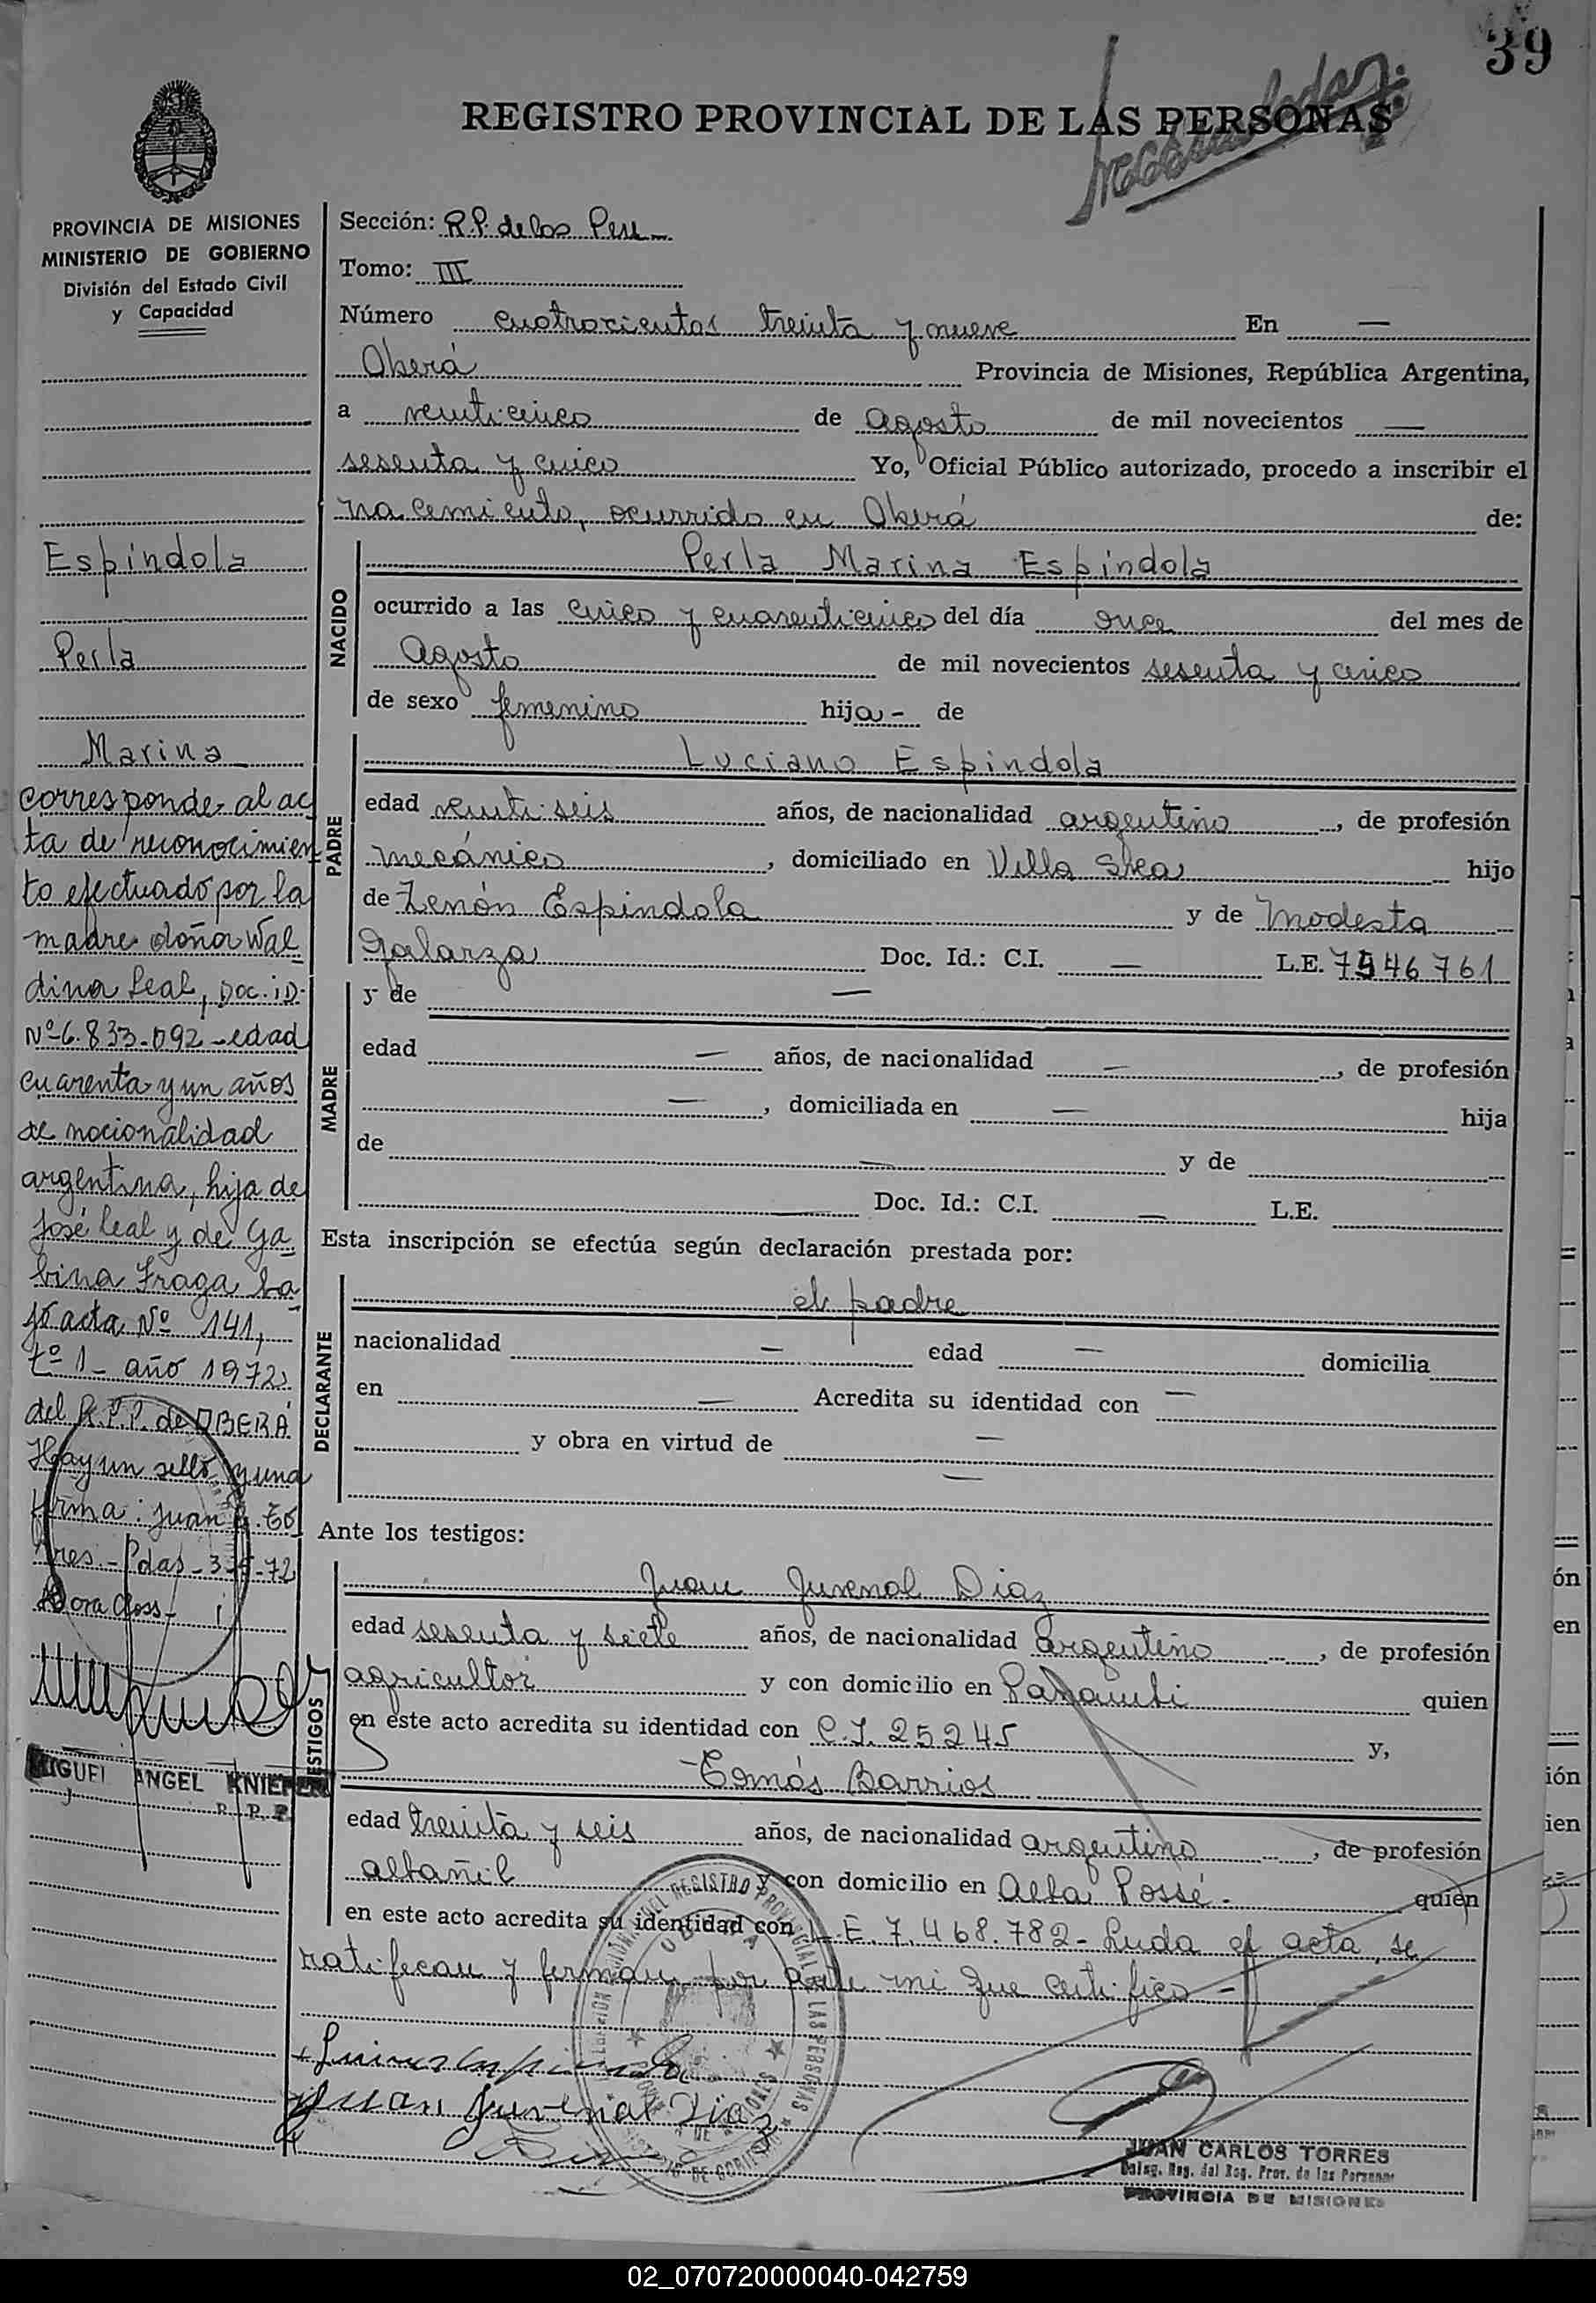 39
REGISTRO PROVINCIAL DE LAS PERSONAS
PROVINCIA DE MISIONES
MINISTERIO DE GOBIERNO
División del Estado Civil
y Capacidad
Espíndola
Perla
Marina
corresponde al ac
ta de reconocimien
to efectuado por la
madre doña Wal
dina Leal, Doc. iD.
Nº 6.833.092 - edad
cuarenta y un años
de nacionalidad
argentina, hija de
José Leal y de Ga
bina Fraga ba
jo acta Nº 141,
tº 1 - año 1972
del R.P.P. de OBERÁ
Hay un sello y una
firma: Juan C. To
rres - Pdas - 3-5-72
MIGUEL ANGEL
R. P. P.
Sección: R.P. de las Per
Tomo: III
Número cuatrocientos treinta y nueve En —
Oberá Provincia de Misiones, República Argentina,
a veinticinco de Agosto de mil novecientos —
sesenta y cinco Yo, Oficial Público autorizado, procedo a inscribir el
nacimiento, ocurrido en Oberá de:
NACIDO
Perla Marina Espíndola
ocurrido a las cinco y cuarenticinco del día once del mes de
Agosto de mil novecientos sesenta y cinco
de sexo femenino hija - de
PADRE
Luciano Espíndola
edad veintiseis años, de nacionalidad argentino, de profesión
mecánico, domiciliado en Villa Svea hijo
de Zenón Espíndola y de Modesta
Galarza Doc. Id.: C.I. — L.E. 7546761
MADRE
y de —
edad — años, de nacionalidad —, de profesión
—, domiciliada en — hija
de — y de
Doc. Id.: C.I. — L.E.
Esta inscripción se efectúa según declaración prestada por:
DECLARANTE
el padre
nacionalidad — edad — domicilia
en — Acredita su identidad con —
y obra en virtud de —
—
Ante los testigos:
TESTIGOS
Juan Juvenal Diaz
edad sesenta y siete años, de nacionalidad argentino, de profesión
agricultor y con domicilio en Panambi quien
en este acto acredita su identidad con C.I. 25245 y,
Tomás Barrios
edad treinta y seis años, de nacionalidad argentino, de profesión
albañil y con domicilio en Alba Possé - quien
en este acto acredita su identidad con L.E. 7.468.782 - Leida el acta, se
ratifican y firman por ante mi que certifico -
Juan Juvenal Diaz
JUAN CARLOS TORRES
Deleg. Reg. del Reg. Prov. de las Personas
PROVINCIA DE MISIONES
02_070720000040-042759